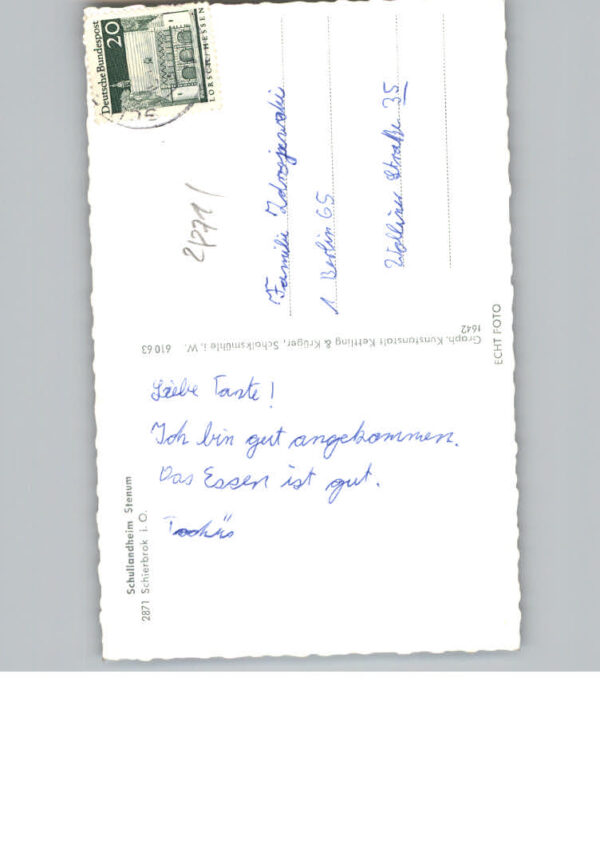 Deutsche Bundespost
20
LORSCH/HESSEN
2/271/
Familie
1 Berlin 65
Wolliner Straße 35
Graph. Kunstanstalt Kettling & Krüger, Schalksmühle i. W. 610 63
1642
ECHT FOTO
Liebe Tante!
Ich bin gut angekommen.
Das Essen ist gut.
Schullandheim Stenum
2871 Schierbrok i. O.